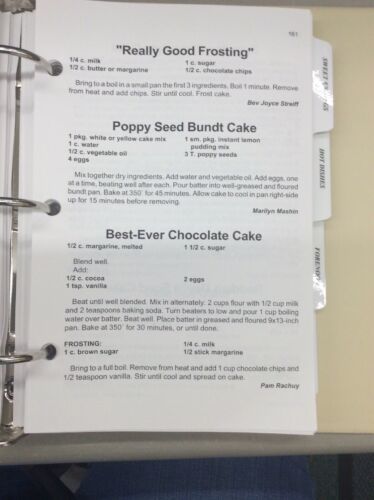 161
"Really Good Frosting"
1/4 c. milk 1 c. sugar
1/2 c. butter or margarine 1/2 c. chocolate chips
Bring to a boil in a small pan the first 3 ingredients. Boil 1 minute. Remove
from heat and add chips. Stir until cool. Frost cake.
Bev Joyce Streiff
Poppy Seed Bundt Cake
1 pkg. white or yellow cake mix 1 sm. pkg. instant lemon
1 c. water pudding mix
1/2 c. vegetable oil 3 T. poppy seeds
4 eggs
Mix together dry ingredients. Add water and vegetable oil. Add eggs, one
at a time, beating well after each. Pour batter into well-greased and floured
bundt pan. Bake at 350° for 45 minutes. Allow cake to cool in pan right-side
up for 15 minutes before removing.
Marilyn Mashin
Best-Ever Chocolate Cake
1/2 c. margarine, melted 1 1/2 c. sugar
Blend well.
Add:
1/2 c. cocoa 2 eggs
1 tsp. vanilla
Beat until well blended. Mix in alternately: 2 cups flour with 1/2 cup milk
and 2 teaspoons baking soda. Turn beaters to low and pour 1 cup boiling
water over batter. Beat well. Place batter in greased and floured 9x13-inch
pan. Bake at 350° for 30 minutes, or until done.
FROSTING: 1/4 c. milk
1 c. brown sugar 1/2 stick margarine
Bring to a full boil. Remove from heat and add 1 cup chocolate chips and
1/2 teaspoon vanilla. Stir until cool and spread on cake.
Pam Rachuy
SWEET
HOT DISHES